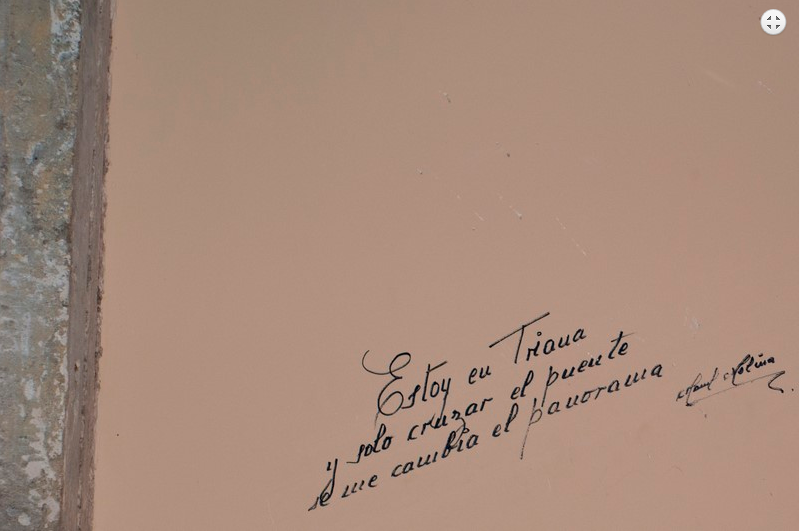 Estoy en Triana
y solo cruzar el puente
se me cambia el panorama
Manuel Molina